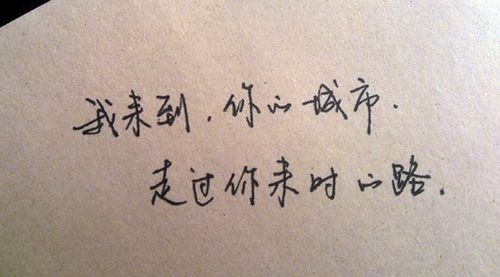 我来到,你的城市.
走过你来时的路.